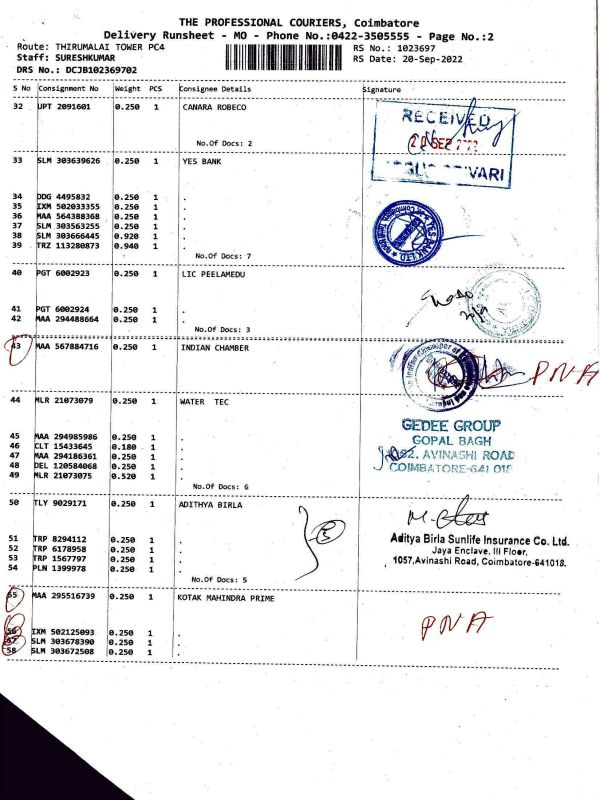 THE PROFESSIONAL COURIERS, Coimbatore
Delivery Runsheet - MO - Phone No.:0422-3505555 - Page No.:2
Route: THIRUMALAI TOWER PC4 RS No.: 1023697
Staff: SURESHKUMAR RS Date: 20-Sep-2022
DRS No.: DCJB102369702
S No Consignment No Weight PCS Consignee Details Signature
32 UPT 2091601 0.250 1 CANARA ROBECO
RECEIVED
20 SEP 2022
No.Of Docs: 2
33 SLM 303639626 0.250 1 YES BANK
34 DDG 4495832 0.250 1 .
35 IXM 502033355 0.250 1 .
36 MAA 564388368 0.250 1 .
37 SLM 303563255 0.250 1 .
38 SLM 303666445 0.920 1 .
39 TRZ 113280873 0.940 1 .
YES BANK LTD.
No.Of Docs: 7
40 PGT 6002923 0.250 1 LIC PEELAMEDU
41 PGT 6002924 0.250 1 .
42 MAA 294488664 0.250 1 .
No.Of Docs: 3
43 MAA 567884716 0.250 1 INDIAN CHAMBER
PNA
44 MLR 21073079 0.250 1 WATER TEC
45 MAA 294985986 0.250 1 .
46 CLT 15433645 0.180 1 .
47 MAA 294186361 0.250 1 .
48 DEL 120584068 0.250 1 .
49 MLR 21073075 0.520 1 .
GEDEE GROUP
GOPAL BAGH
AVINASHI ROAD
COIMBATORE-641 018
No.Of Docs: 6
50 TLY 9029171 0.250 1 ADITHYA BIRLA
51 TRP 8294112 0.250 1 .
52 TRP 6178958 0.250 1 .
53 TRP 1567797 0.250 1 .
54 PLN 1399978 0.250 1 .
5
Aditya Birla Sunlife Insurance Co. Ltd.
Jaya Enclave, III Floor,
1057,Avinashi Road, Coimbatore-641018.
No.Of Docs: 5
55 MAA 295516739 0.250 1 KOTAK MAHINDRA PRIME
56 IXM 502125093 0.250 1 .
57 SLM 303678390 0.250 1 .
58 SLM 303672508 0.250 1 .
PNA